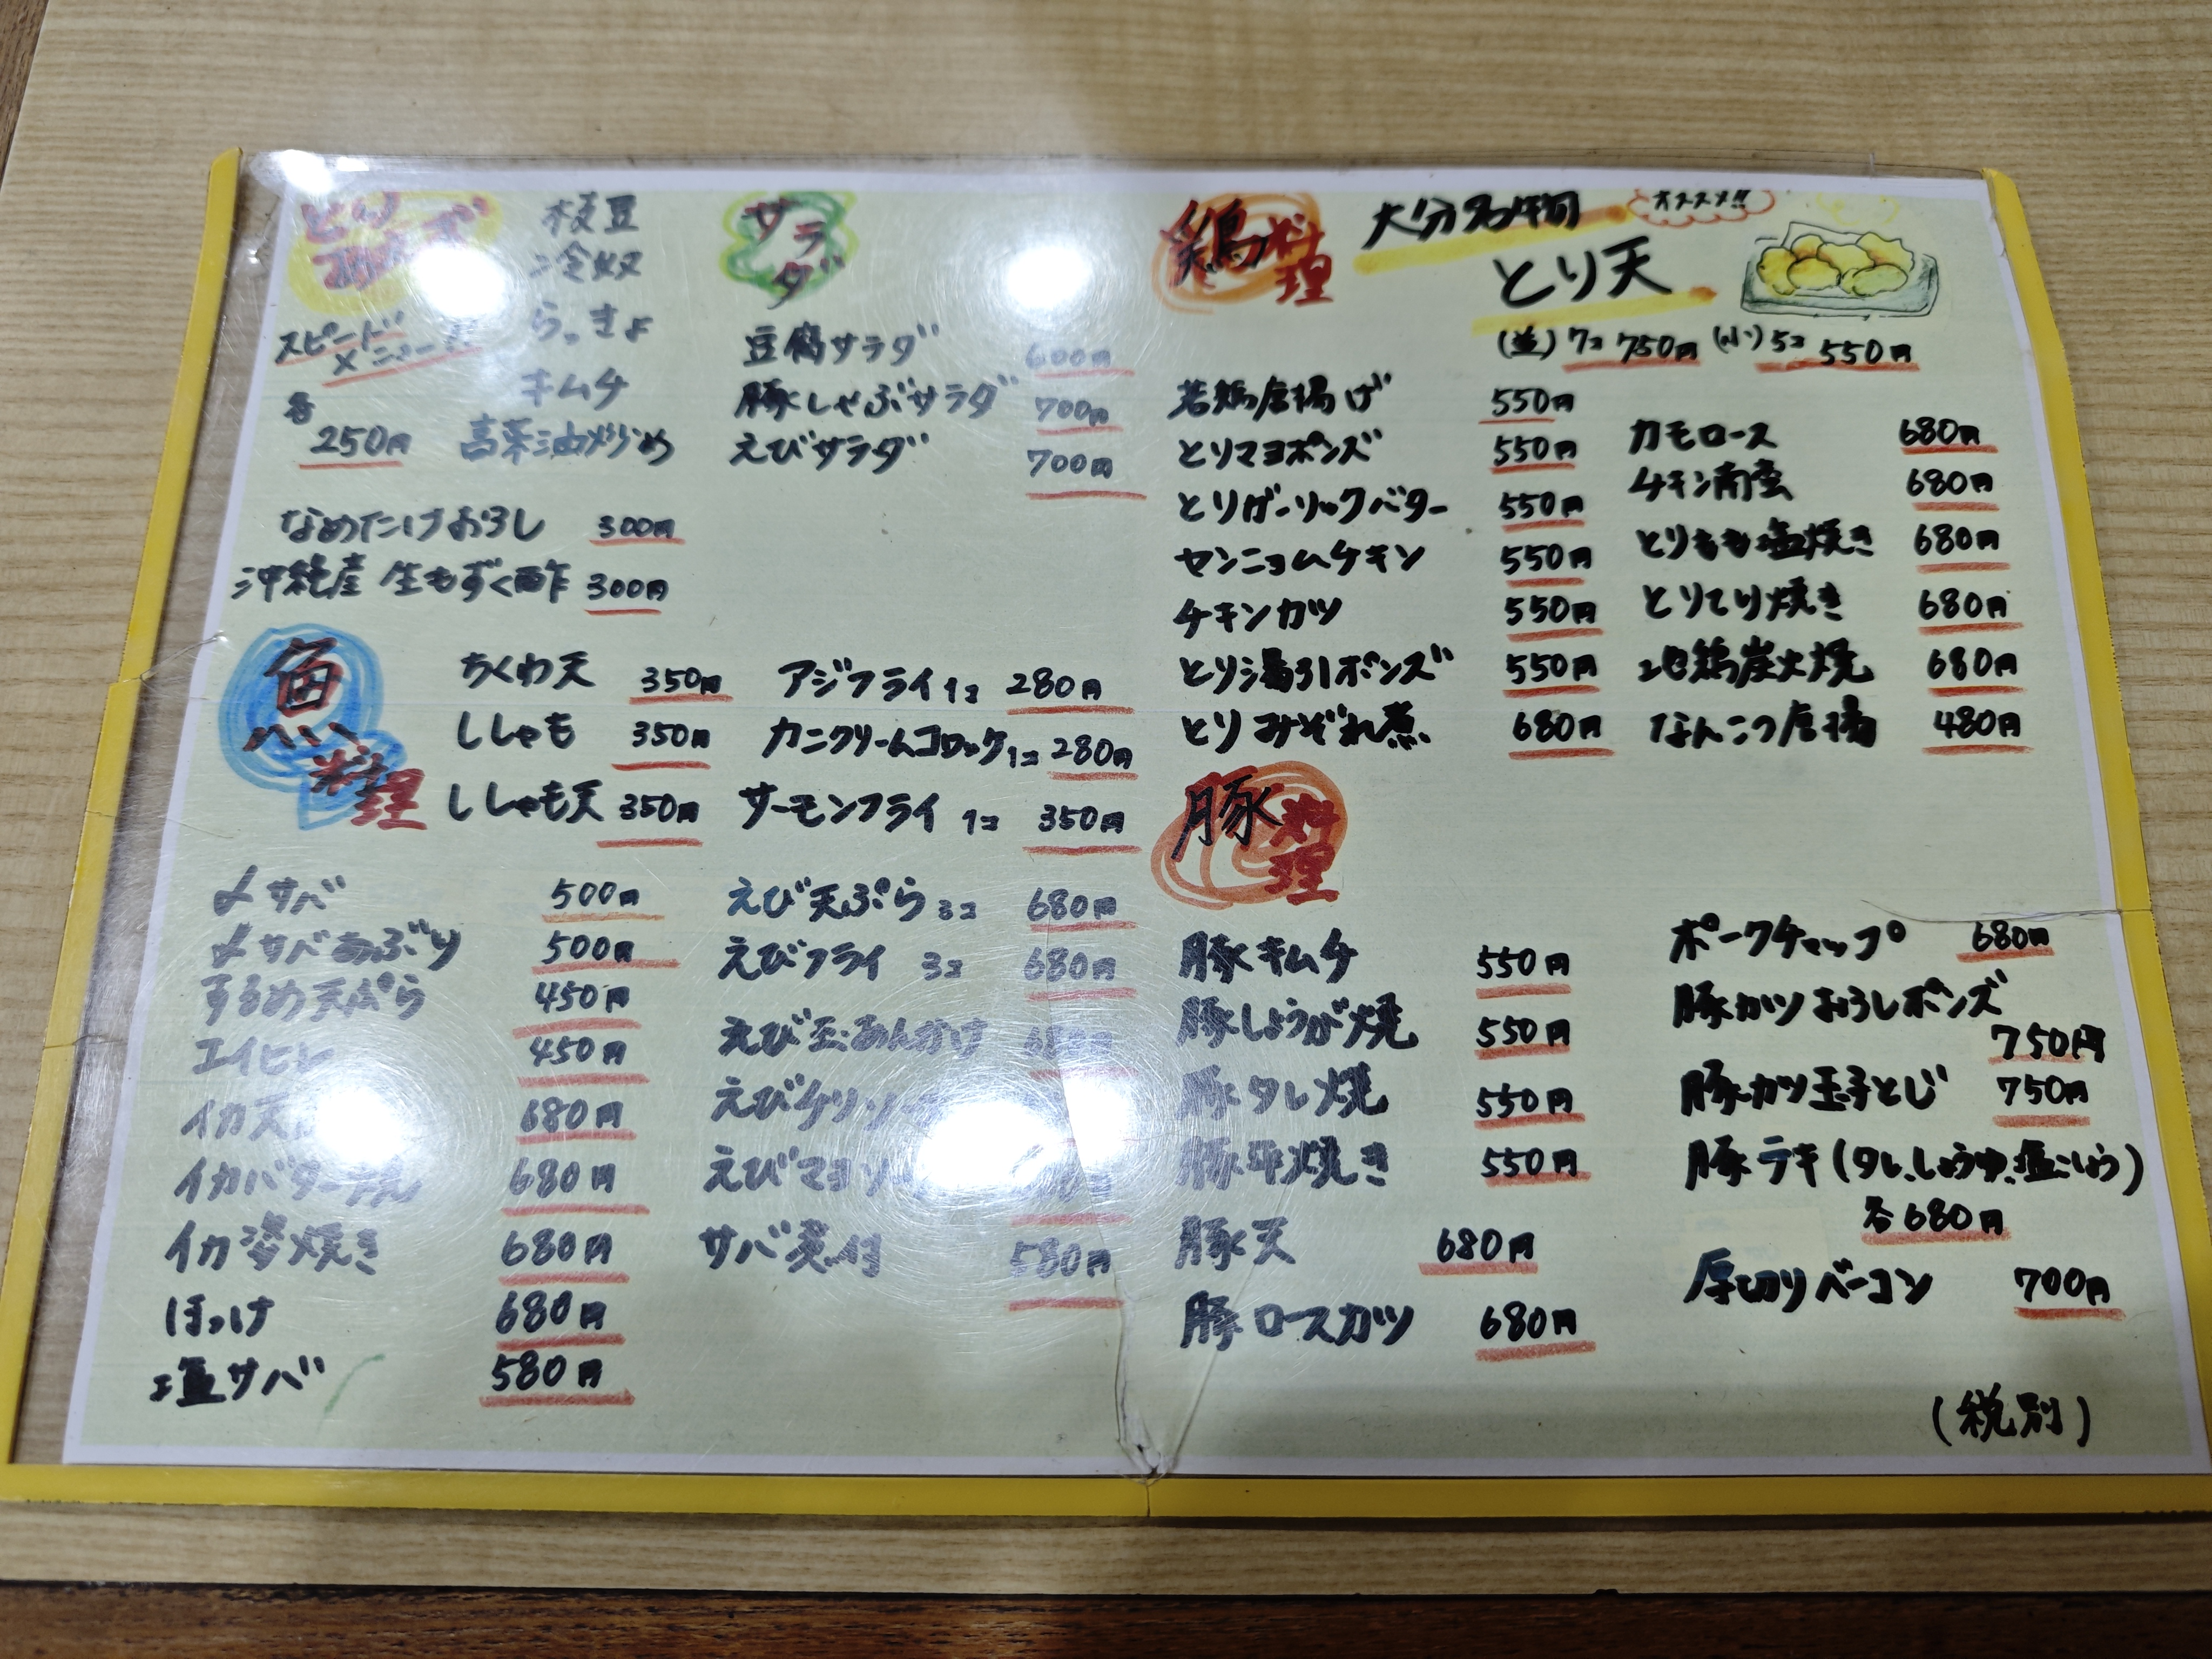 とりあえず
スピード
メニュー
各
250円
枝豆
冷奴
らっきょ
キムチ
高菜油炒め
なめたけおろし 300円
沖縄産 生もずく酢 300円
サラダ
豆腐サラダ 600円
豚しゃぶサラダ 700円
えびサラダ 700円
魚料理
ちくわ天 350円
ししゃも 350円
ししゃも天 350円
アジフライ 1コ 280円
カニクリームコロッケ 1コ 280円
サーモンフライ 1コ 350円
〆サバ 500円
〆サバあぶり 500円
するめ天ぷら 450円
エイヒレ 450円
イカ天 680円
イカバター焼 680円
イカ姿焼き 680円
ほっけ 680円
塩サバ 580円
えび天ぷら 3コ 680円
えびフライ 3コ 680円
えび玉あんかけ 680円
えびチリソ
えびマヨソ
サバ煮付 580円
鶏料理
大分名物 オススメ!!
とり天
(並) 7コ 750円 (小) 5コ 550円
若鶏唐揚げ 550円
とりマヨポンズ 550円
とりガーリックバター 550円
ヤンニョムチキン 550円
チキンカツ 550円
とり湯引ポンズ 550円
とりみぞれ煮 680円
カモロース 680円
チキン南蛮 680円
とりもも塩焼き 680円
とりてり焼き 680円
地鶏炭火焼 680円
なんこつ唐揚 480円
豚料理
豚キムチ 550円
豚しょうが焼 550円
豚タレ焼 550円
豚平焼き 550円
豚天 680円
豚ロースカツ 680円
ポークチャップ 680円
豚カツおろしポンズ
750円
豚カツ玉子とじ 750円
豚テキ(タレ、しょうゆ、塩こしょう)
各680円
厚切りベーコン 700円
(税別)